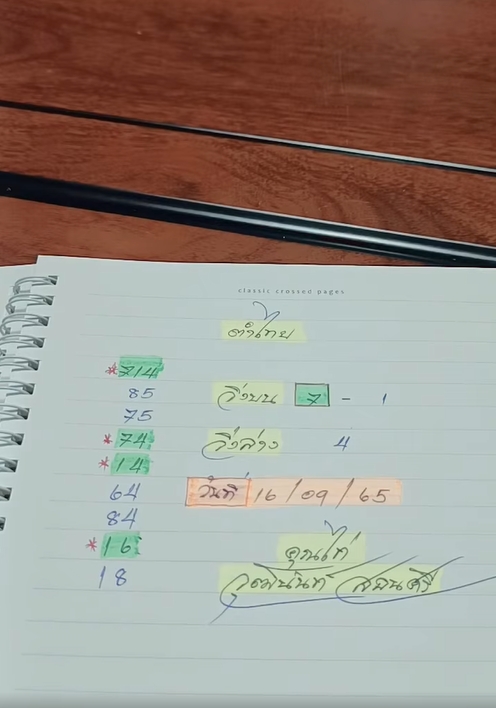 classic crossed pages
ตำไทย
*714
85
วิ่งบน 7 - 1
75
*74
วิ่งล่าง 4
*14
64
วันที่ 16/09/65
84
*16
คุณไก่
18
วุฒินันท์